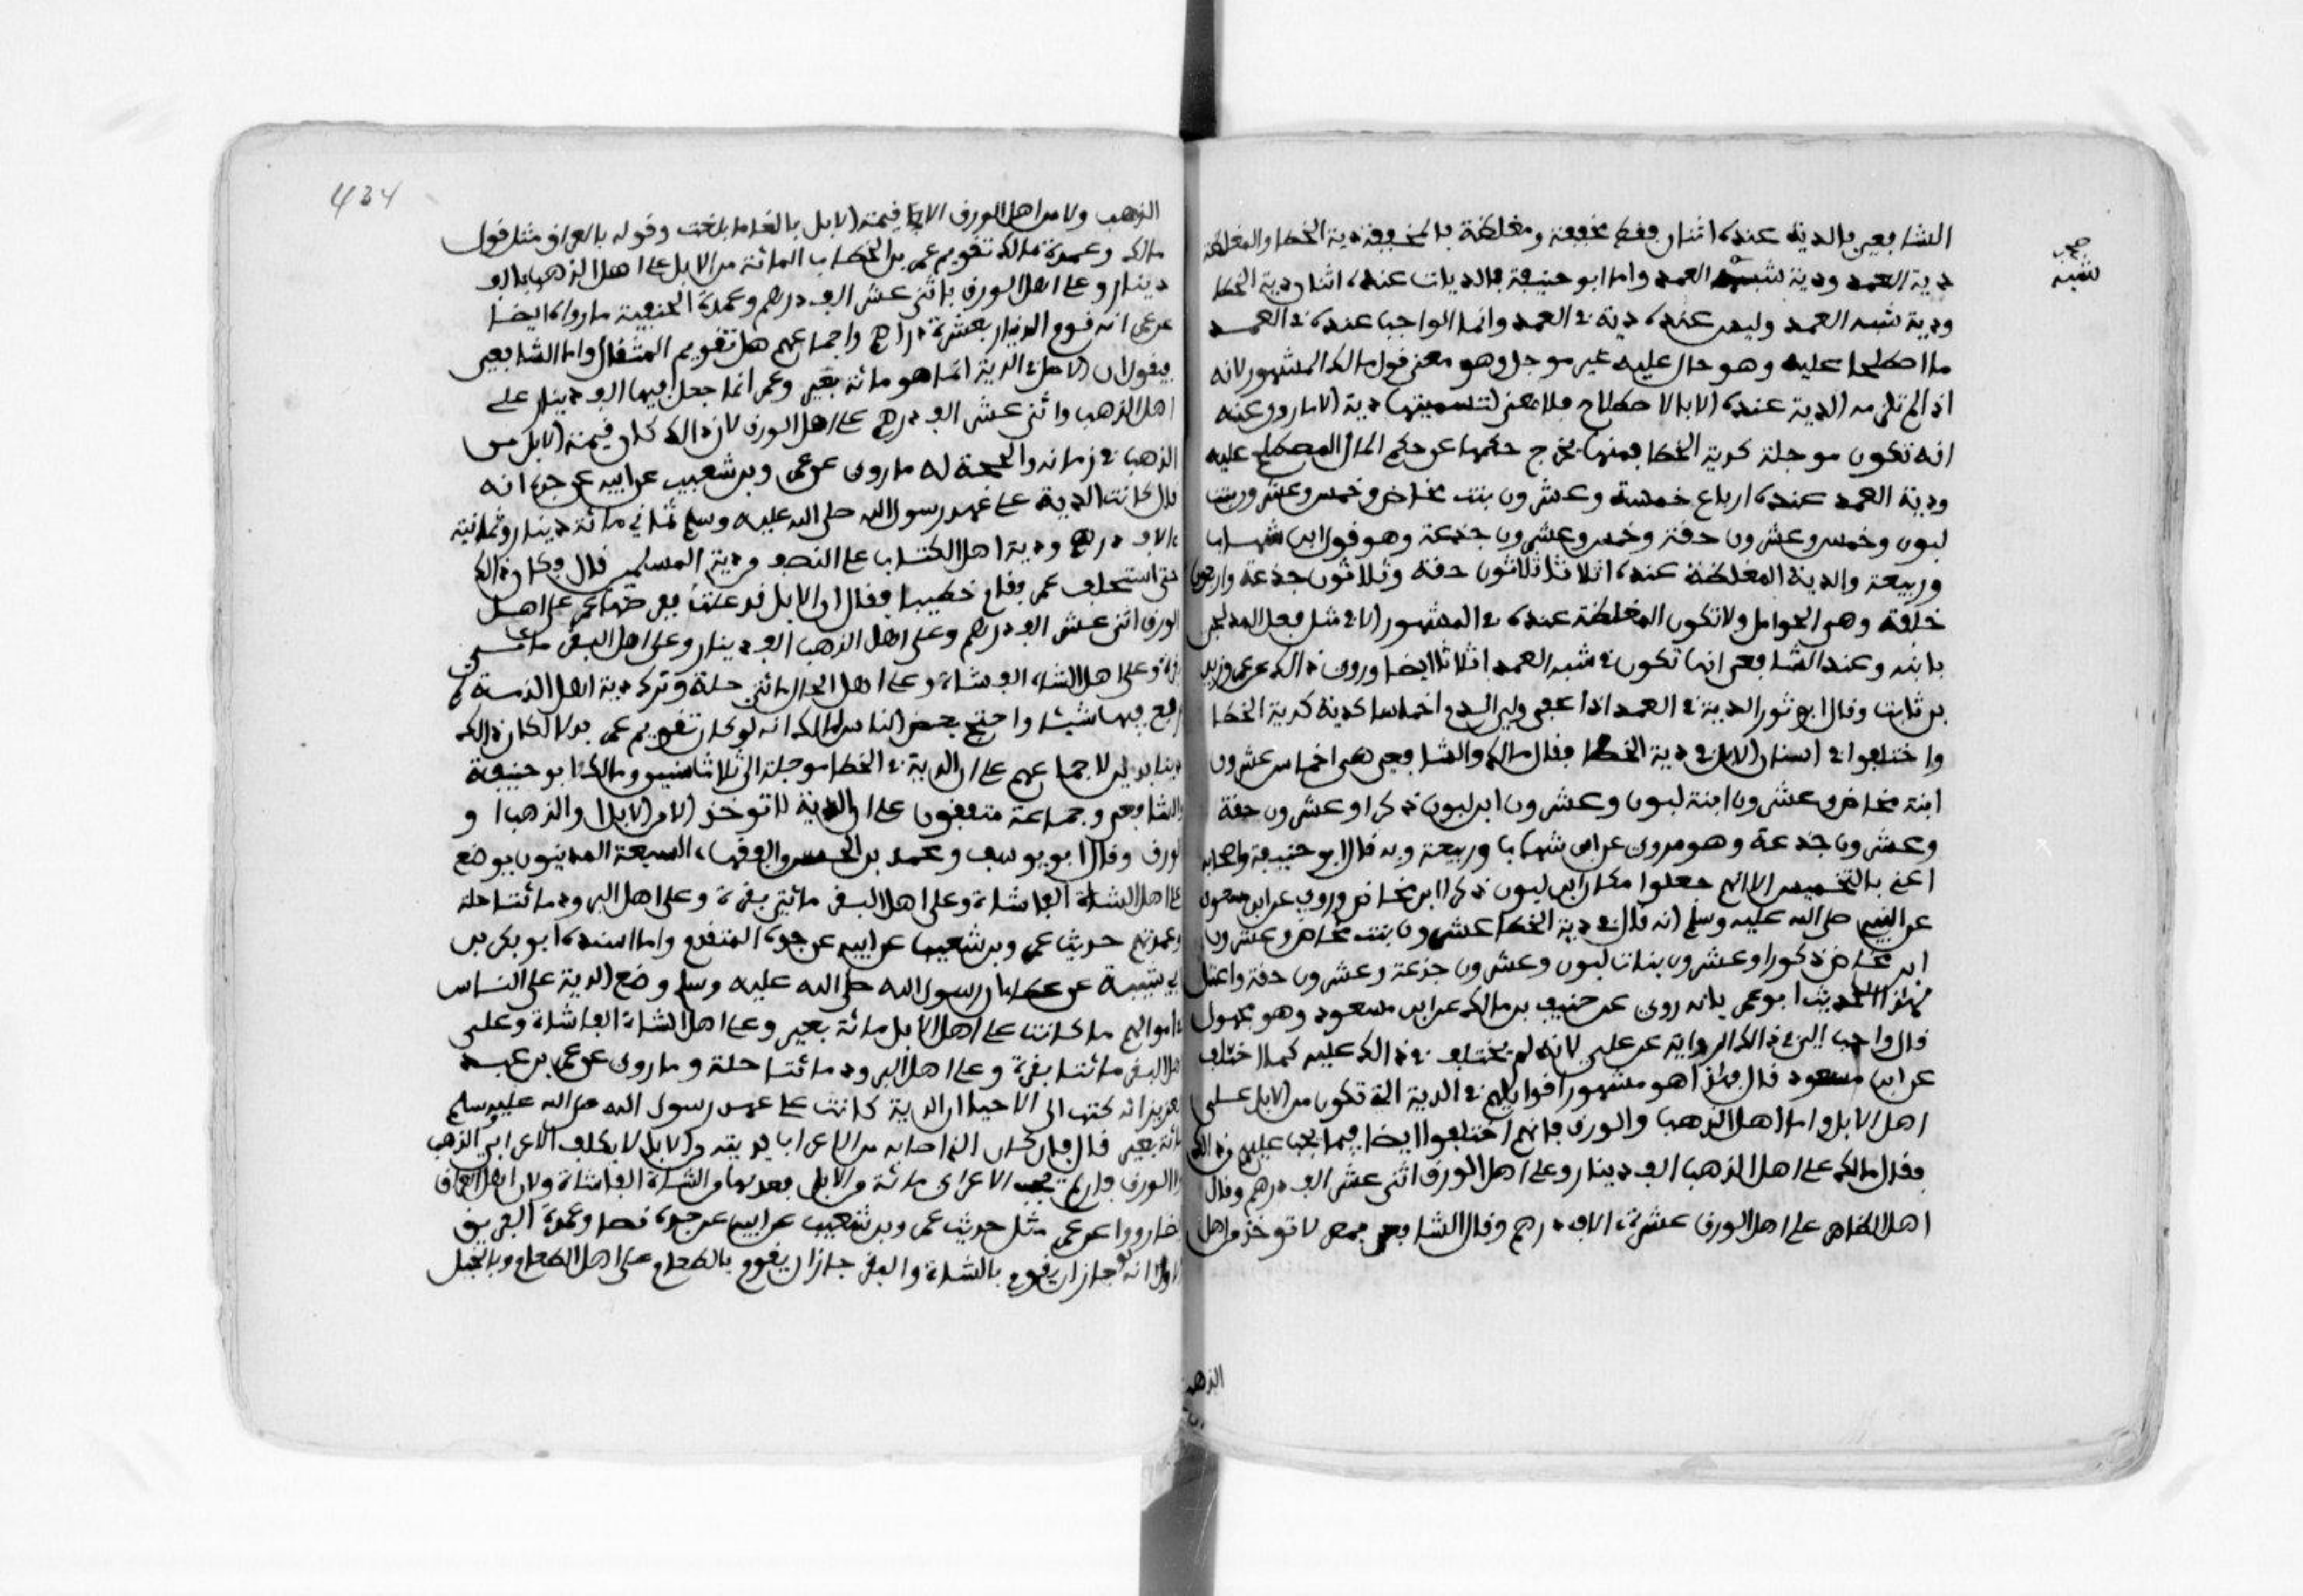 الشافعي فالدية عنده اثنان فقط مخففة ومغلظة فالمخففة دية الخطا والمغلظة
دية العمد ودية شبه العمد واما ابو حنيفة فالديات عنده اثنان دية الخطا
ودية شبه العمد وليس عنده دية في العمد وانما الواجب عنده في العمد
ما اصطلحا عليه وهو حال عليه غير موجل وهو معنى قول مالك المشهور لانه
اذا لم تلزمه الدية عنده الا بالاصطلاح فلا معنى لتسميتها دية الا ما روي عنه
انه تكون موجلة كدية الخطا فمنها يخرج حكمها عن حكم المال المصطلح عليه
ودية العمد عنده ارباع خمسة وعشرون بنت مخاض وخمس وعشرون بنت
لبون وخمس وعشرون حقة وخمس وعشرون جذعة وهو قول ابن شهاب
وربيعة والدية المغلظة عنده اثلاثا ثلاثون حقة وثلاثون جذعة واربعون
خلفة وهي الحوامل ولا تكون المغلظة عنده في المشهور الا في مثل فعل المدلجي
بابنه وعند الشافعي انها تكون في شبه العمد اثلاثا ايضا وروي ذالك عن عمر وزيد
بن ثابت وقال ابو ثور الدية في العمد اذا عفى ولي الدم اخماسا كدية الخطا
واختلفوا في اسنان الابل في دية الخطا فقال مالك والشافعي هي اخماس عشرون
ابنة مخاض وعشرون ابنة لبون وعشرون ابن لبون ذكرا وعشرون حقة
وعشرون جذعة وهو مروي عن ابن شهاب وربيعة وبه قال ابو حنيفة واصحابه
اعني بالتخميس الا انهم جعلوا مكان ابن لبون ذكرا ابن مخاض وروي عن ابن مسعود
عن النبي صلى الله عليه وسلم انه قال في دية الخطا عشرون بنت مخاض وعشرون
ابن مخاض ذكورا وعشرون بنات لبون وعشرون جذعة وعشرون حقة واعتل
لهذا الحديث ابو عمر بانه روي عن حنيف بن مالك عن ابن مسعود وهو مجهول
قال واحب الي في ذالك الرواية عن علي لانه لم يختلف في ذالك عليه كما اختلف
عن ابن مسعود قال فهذا هو مشهور اقوالهم في الدية التي تكون من الابل على
اهل الابل واما اهل الذهب والورق فانهم اختلفوا ايضا فيما يجب عليهم من ذالك
فقال مالك على اهل الذهب الف دينار وعلى اهل الورق اثنى عشر الف درهم وقال
اهل العراق على اهل الورق عشرة الاف درهم وقال الشافعي بمصر لا توخذ من اهل
الذهب
صح
شبه
434
الذهب ولا من اهل الورق الا قيمة الابل بالغا ما بلغت وقوله بالعراق مثل قول
مالك وعمدة مالك تقويم عمر بن الخطاب المائة من الابل على اهل الذهب بالف
دينار وعلى اهل الورق باثنى عشر الف درهم وعمدة الحنفية ما رواه ايضا
عن عمر انه قوم الدينار بعشرة دراهم واجماعهم على تقويم المثقال واما الشافعي
فيقول ان الاصل في الدية انما هو مائة بعير وعمر انما جعل فيها الف دينار على
اهل الذهب واثنى عشر الف درهم على اهل الورق لان ذالك كان قيمة الابل من
الذهب في زمانه والحجة له ما روي عن عمرو بن شعيب عن ابيه عن جده انه
قال كانت الدية على عهد رسول الله صلى الله عليه وسلم ثماني مائة دينار وثمانية
ءالاف درهم ودية اهل الكتاب على النصف من دية المسلمين قال وكان ذالك
حتى استخلف عمر فقام خطيبا فقال ان الابل قد غلت ففرضها عمر على اهل
الورق اثنى عشر الف درهم وعلى اهل الذهب الف دينار وعلى اهل البقر مائتي
بقرة وعلى اهل الشاء الف شاة وعلى اهل الحلل مائتي حلة وترك دية اهل الذمة لم
يرفع فيها شيئا واحتج بعض الناس لمالك انه لو كان تقويم عمر بدلا لكان ذالك
دينا بدين لاجماعهم على ان الدية في الخطا موجلة الى ثلاث سنين ومالك وابو حنيفة
والشافعي وجماعة متفقون على ان الدية لا توخذ الا من الابل او الذهب او
الورق وقال ابو يوسف ومحمد بن الحسن والفقهاء السبعة المدنيون يوضع
على اهل الشاة الف شاة وعلى اهل البقر مائتي بقرة وعلى اهل البرود مائتا حلة
وعمدتهم حديث عمرو بن شعيب عن ابيه عن جده المتقدم وما اسنده ابو بكر بن
ابي شيبة عن عطاء ان رسول الله صلى الله عليه وسلم وضع الدية على الناس
في اموالهم ما كانت على اهل الابل مائة بعير وعلى اهل الشاة الف شاة وعلى
اهل البقر مائتا بقرة وعلى اهل البرود مائتا حلة وما روي عن عمر بن عبد
العزيز انه كتب الى الاجناد ان الدية كانت على عهد رسول الله صلى الله عليه وسلم
مائة بعير قال فان كان الذي اصابه من الاعراب فديته من الابل لا يكلف الاعرابي الذهب
ولا الورق فان لم يجد الاعرابي مائة من الابل فعدلها من الشاة الف شاة ولان اهل العراق
ايضا رووا عن عمر مثل حديث عمرو بن شعيب عن ابيه عن جده نصا وعمدة الفريق
الاول انه لو جاز ان يقوم بالشاة والبقر جاز ان يقوم بالطعام على اهل الطعام وبالخيل